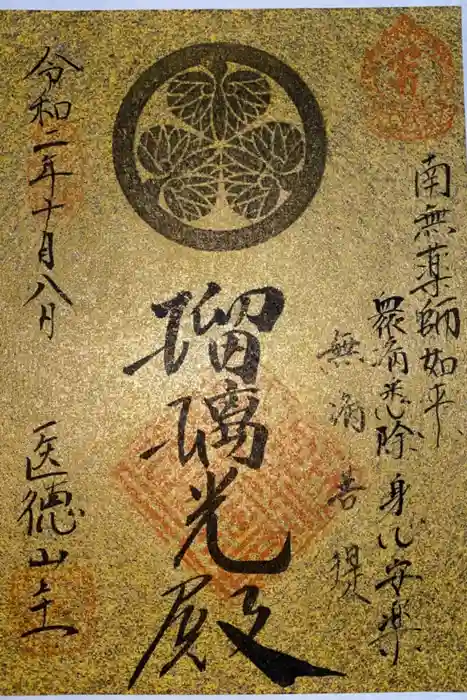 南無薬師如来
衆病悉除身心安楽
無病菩提
瑠璃光殿
令和二年十月八日
医徳山主